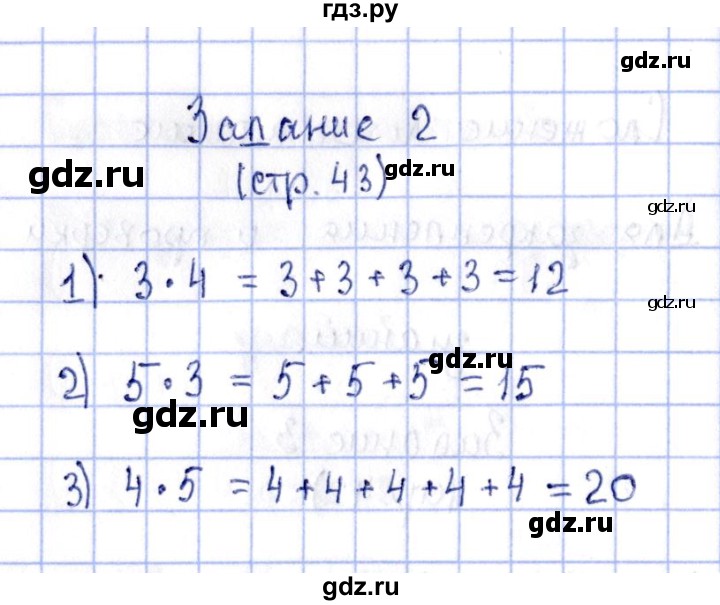 гдз.ру
gdz.ru
Задание 2
gdz.ru
gdz.ru
(стр. 43)
gdz.ru
1) 3 · 4 = 3 + 3 + 3 + 3 = 12
gdz.ru
gdz.ru
2) 5 · 3 = 5 + 5 + 5 = 15
gdz.ru
3) 4 · 5 = 4 + 4 + 4 + 4 + 4 = 20
gdz.ru
gdz.ru